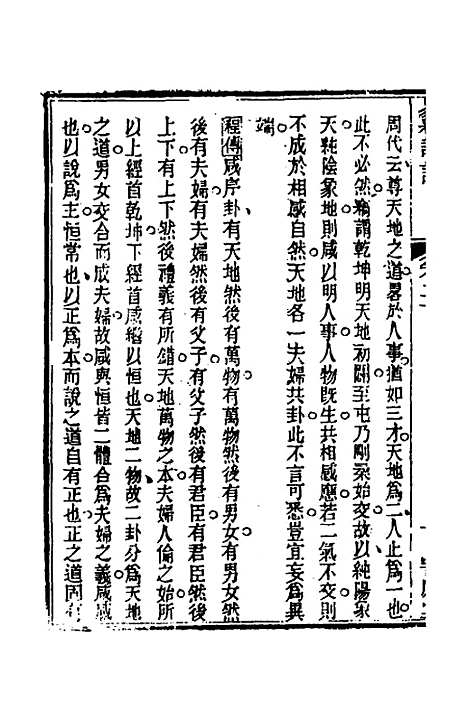 周代云尊天地之道畧於人事猶如三才天地爲二人止爲一也
此不必然竊謂乾坤明天地初闢至屯乃剛柔始交故以純陽象
天純陰象地則咸以明人事人物既生共相感應若二氣不交則
不成於相感自然天地各一夫婦共卦此不言可悉豈宜妄爲異
端
程傳咸序卦有天地然後有萬物有萬物然後有男女有男女然
後有夫婦有夫婦然後有父子有父子然後有君臣有君臣然後
上下有上下然後禮義有所錯天地萬物之本夫婦人倫之始所
以上經首乾坤下經首咸繼以恒也天地二物故二卦分爲天地
之道男女交合而成夫婦故咸與恒皆二體合爲夫婦之義咸感
也以說爲主恒常也以正爲本而說之道自有正也正之道固有